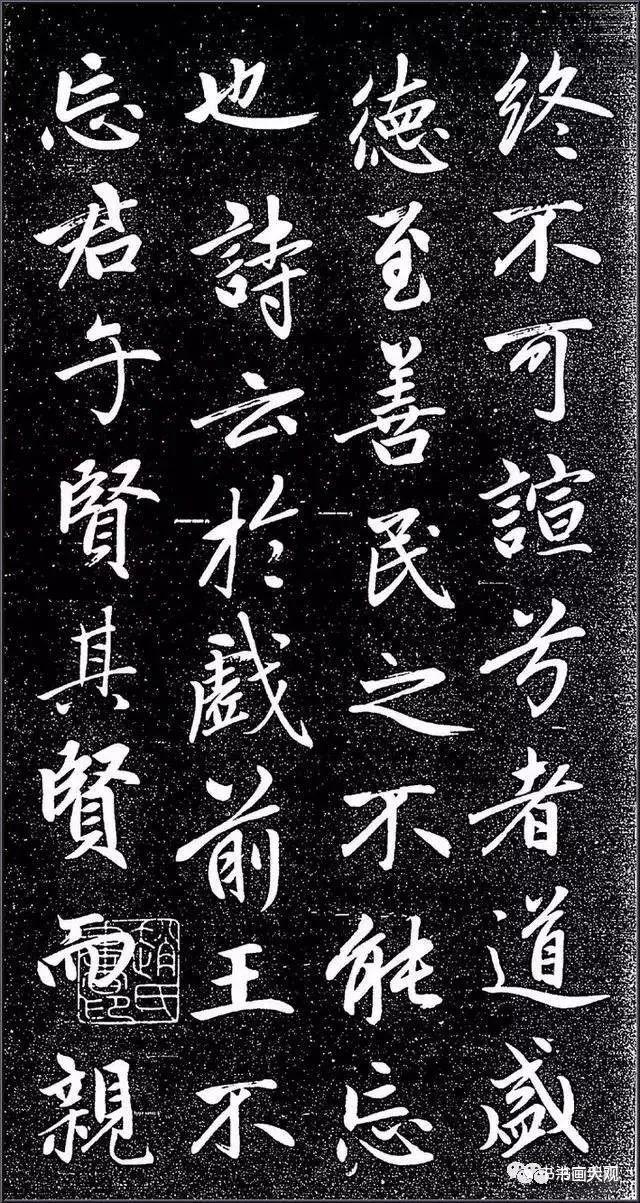 終不可諠兮者道盛
德至善民之不能忘
也詩云於戲前王不
忘君子賢其賢而親
趙氏書印